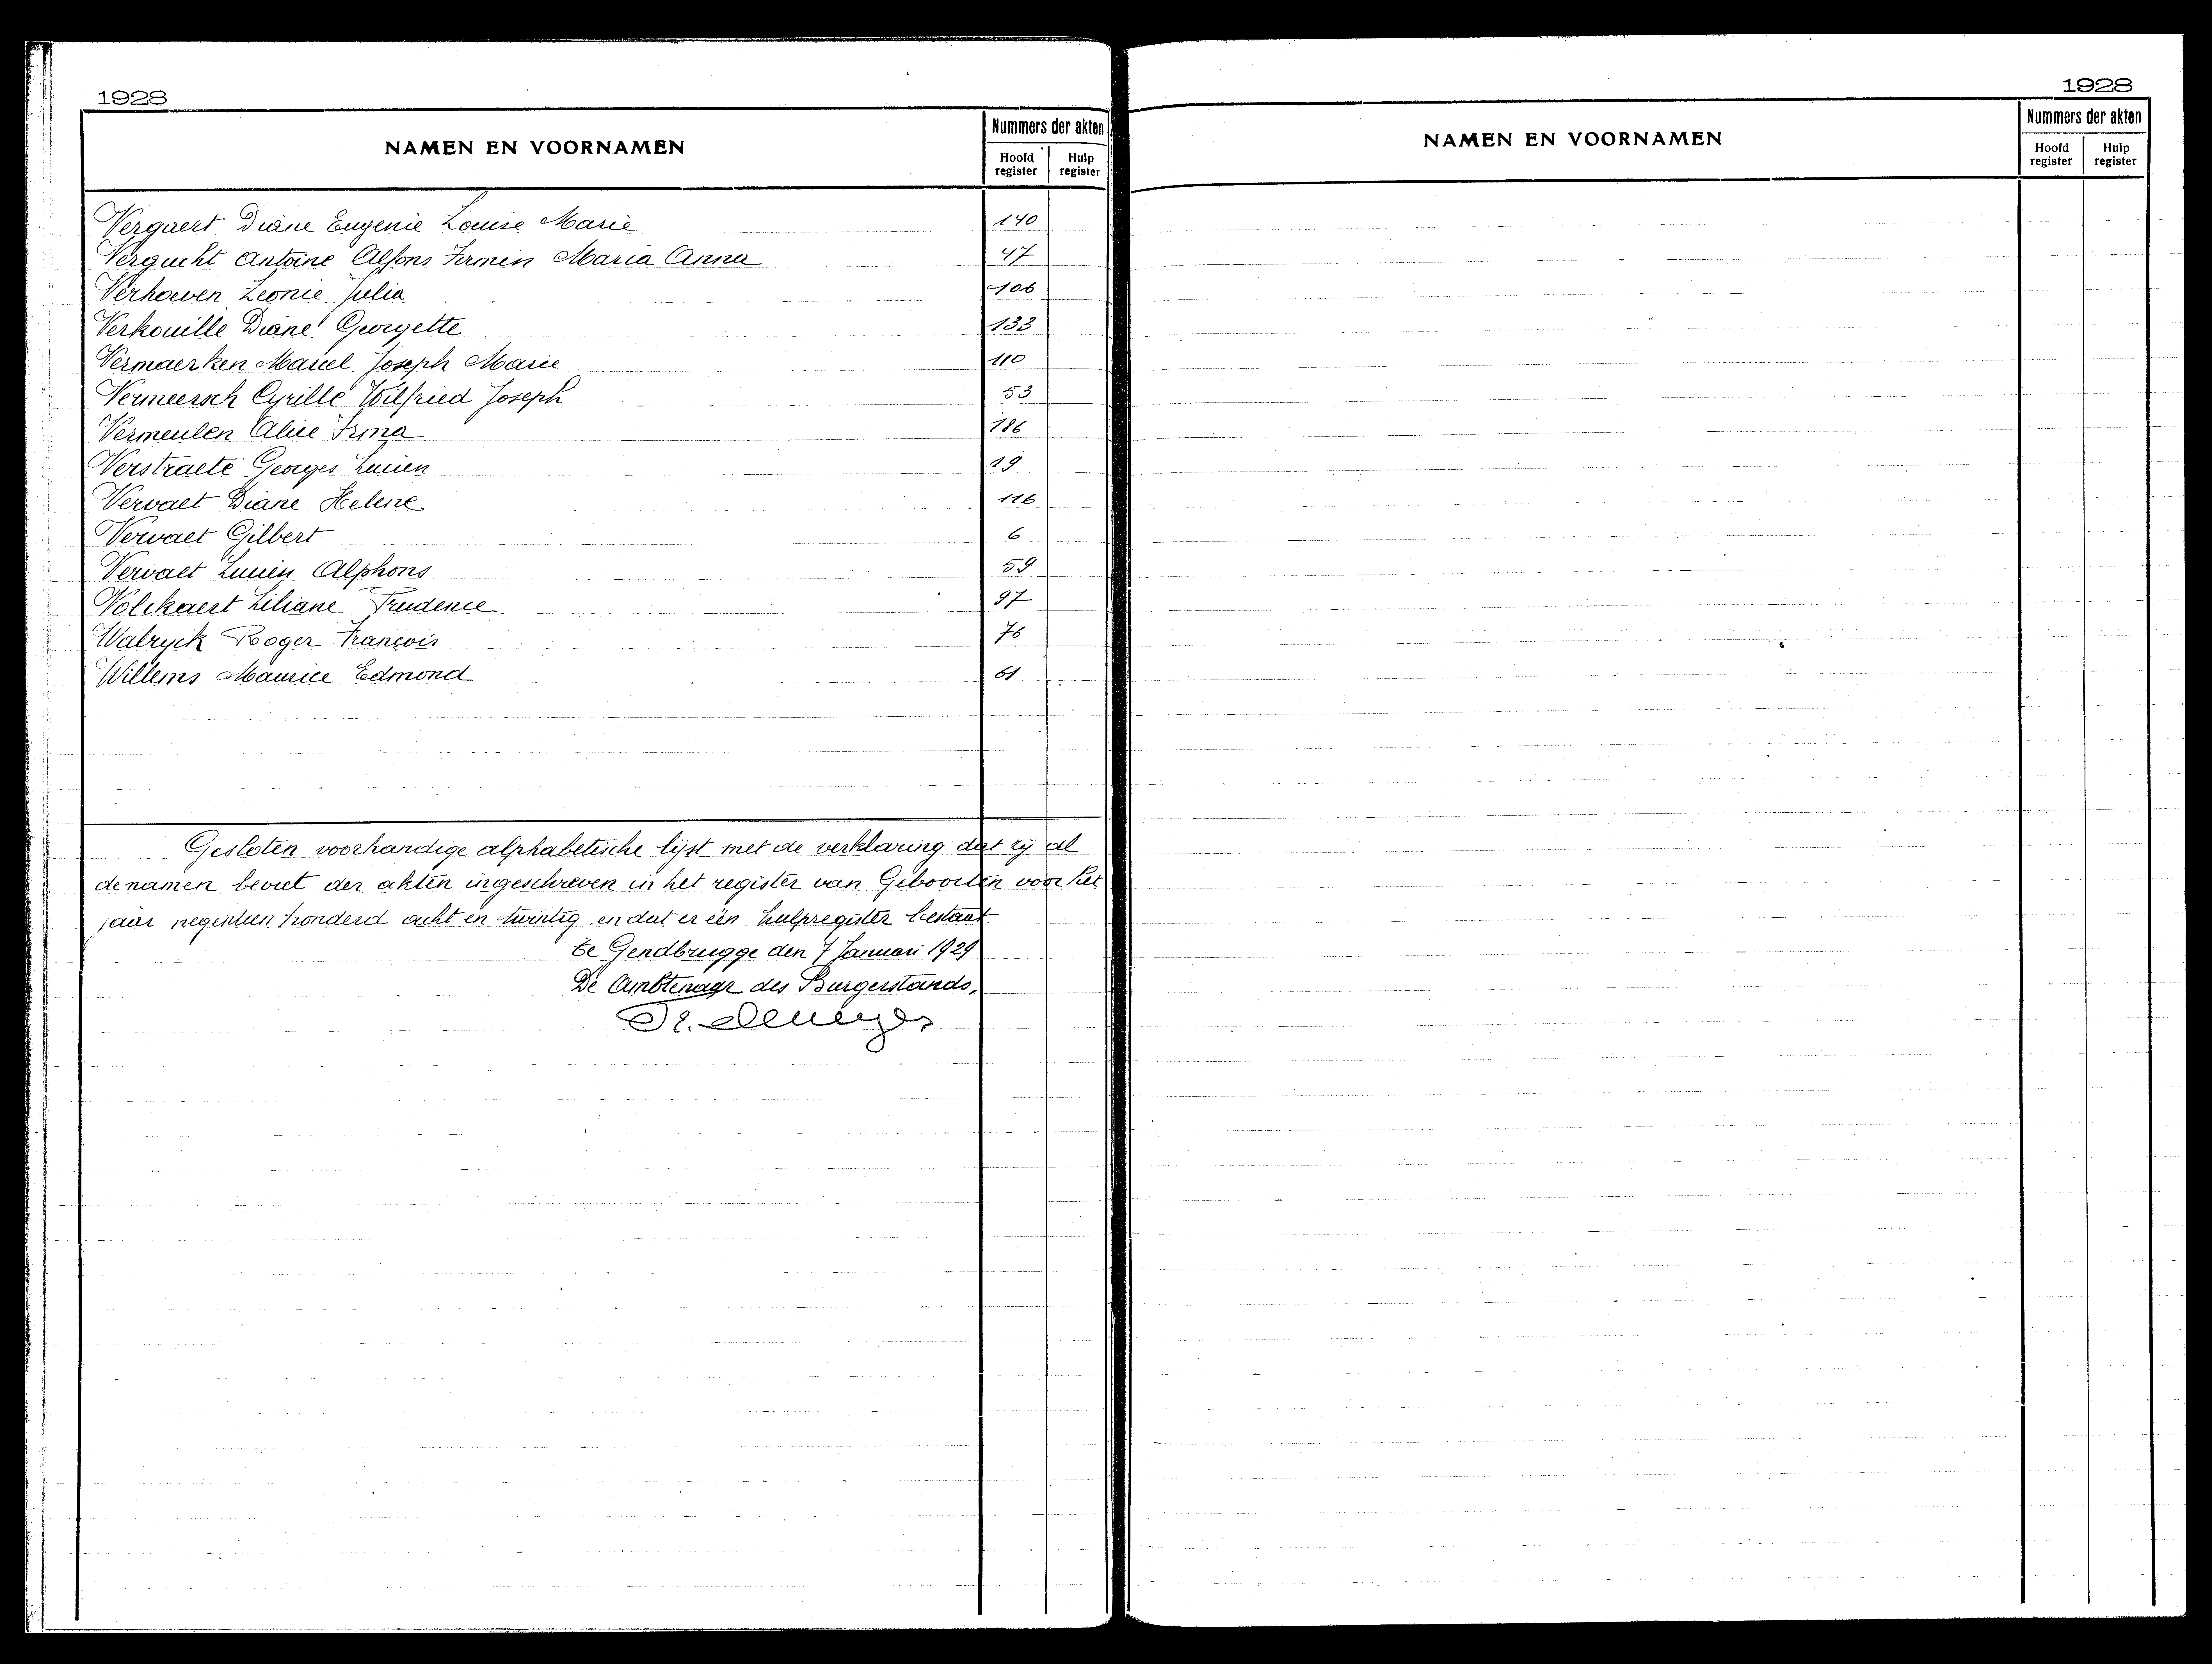 1928
NAMEN EN VOORNAMEN
Nummers der akten
Hoofd register
Hulp register
Vergaert Diane Eugenie Louise Marie 140
Vergucht Antoine Alfons Firmin Maria Anna 47
Verhoeven Leonie Julia 106
Verkouille Diane Georgette 133
Vermaerken Marcel Joseph Marie 110
Vermeersch Cyrille Wilfried Joseph 53
Vermeulen Alice Irma 186
Verstraete Georges Lucien 19
Vervaet Diane Helene 116
Vervaet Gilbert 6
Vervaet Lucien Alphons 59
Volckaert Liliane Prudence 97
Walryck Roger François 76
Willems Maurice Edmond 61
Gesloten voorhandige alphabetische lijst met de verklaring dat zij al
de namen bevat der akten ingeschreven in het register van Geboorten voor het
jaar negentien honderd acht en twintig en dat er één hulpregister bestaat
te Gendbrugge den 7 Januari 1929
De Ambtenaar des Burgerstands,
1928
NAMEN EN VOORNAMEN
Nummers der akten
Hoofd register
Hulp register